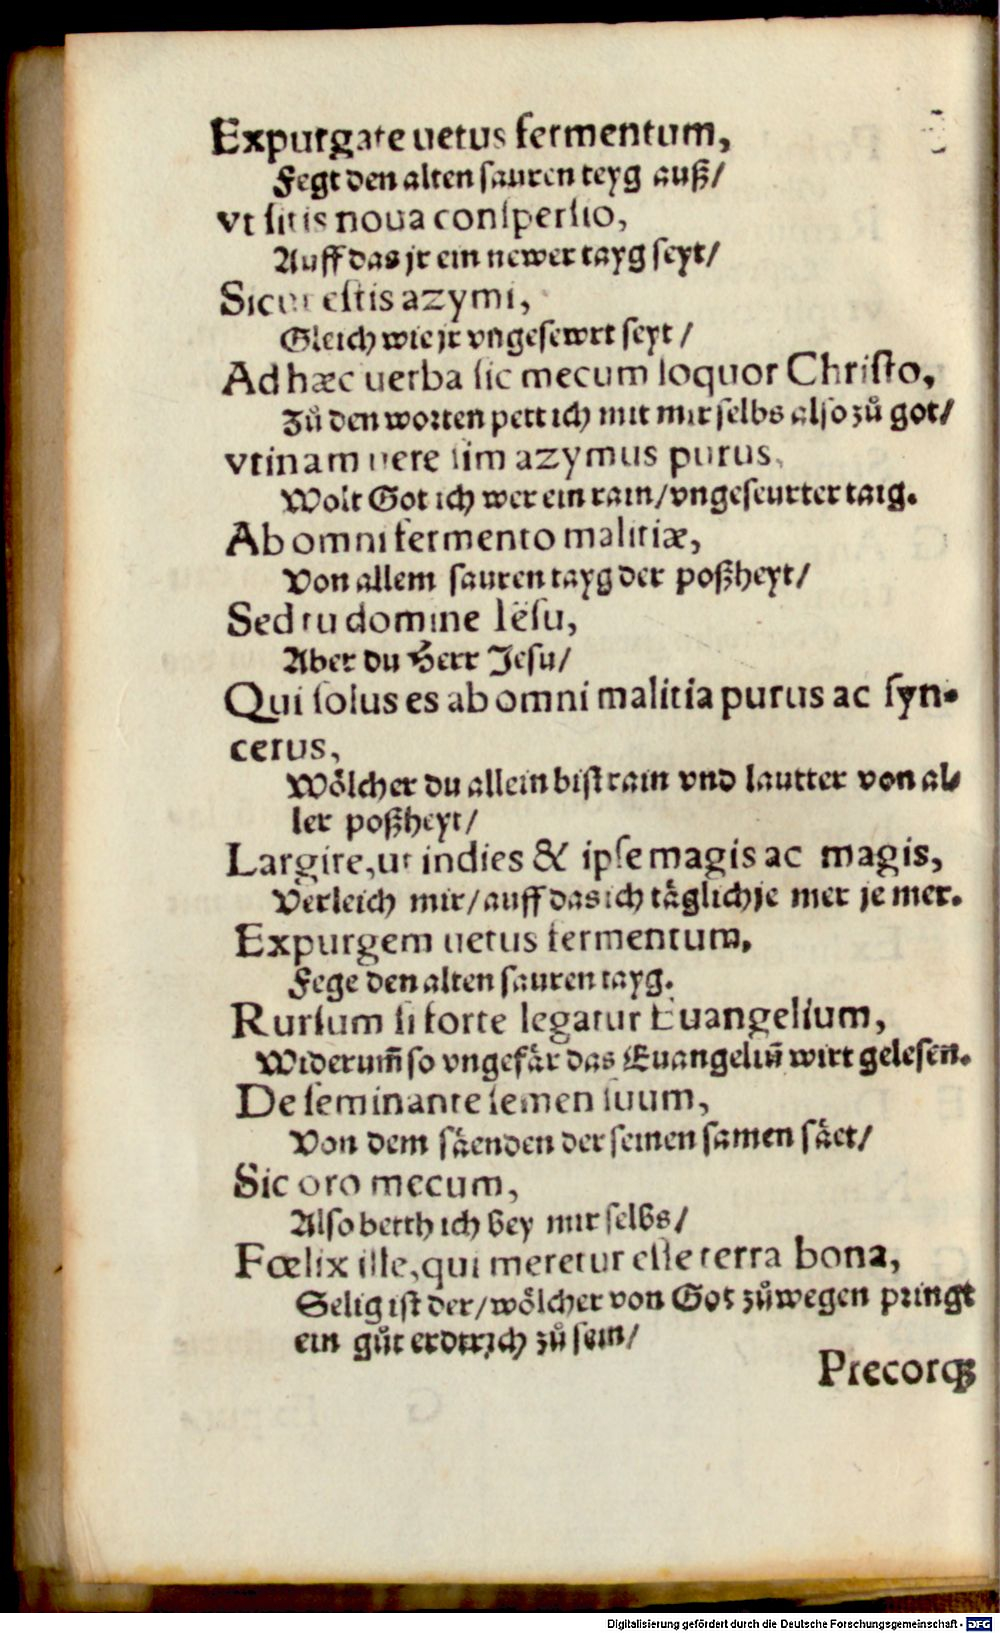 Expurgate uetus fermentum,
Fegt den alten sauren teyg auß/
vt sitis noua conspersio,
Auff das jr ein newer tayg seyt/
Sicut estis azymi,
Gleich wie jr vngesewrt seyt/
Ad hæc uerba sic mecum loquor Christo,
Zů den worten pett ich mit mir selbs also zů got/
vtinam uere sim azymus purus,
Wolt Got ich wer ein rain/vngeseurter taig.
Ab omni fermento malitiæ,
Von allem sauren tayg der poßheyt/
Sed tu domine Iësu,
Aber du Herr Jesu/
Qui solus es ab omni malitia purus ac syn-
cerus,
Wölcher du allein bist rain vnd lautter von al-
ler poßheyt/
Largire,ut indies & ipse magis ac magis,
Verleich mir/auff das ich täglich je mer je mer.
Expurgem uetus fermentum,
Fege den alten sauren tayg.
Rursum si forte legatur Euangelium,
Widerum̃ so vngefär das Euangeliũ wirt gelesen.
De seminante semen suum,
Von dem säenden der seinen samen säet/
Sic oro mecum,
Also betth ich bey mir selbs/
Fœlix ille,qui meretur esse terra bona,
Selig ist der/wölcher von Got zůwegen pringt
ein gůt erdtrich zů sein/
Precorqꝫ
Digitalisierung gefördert durch die Deutsche Forschungsgemeinschaft - DFG